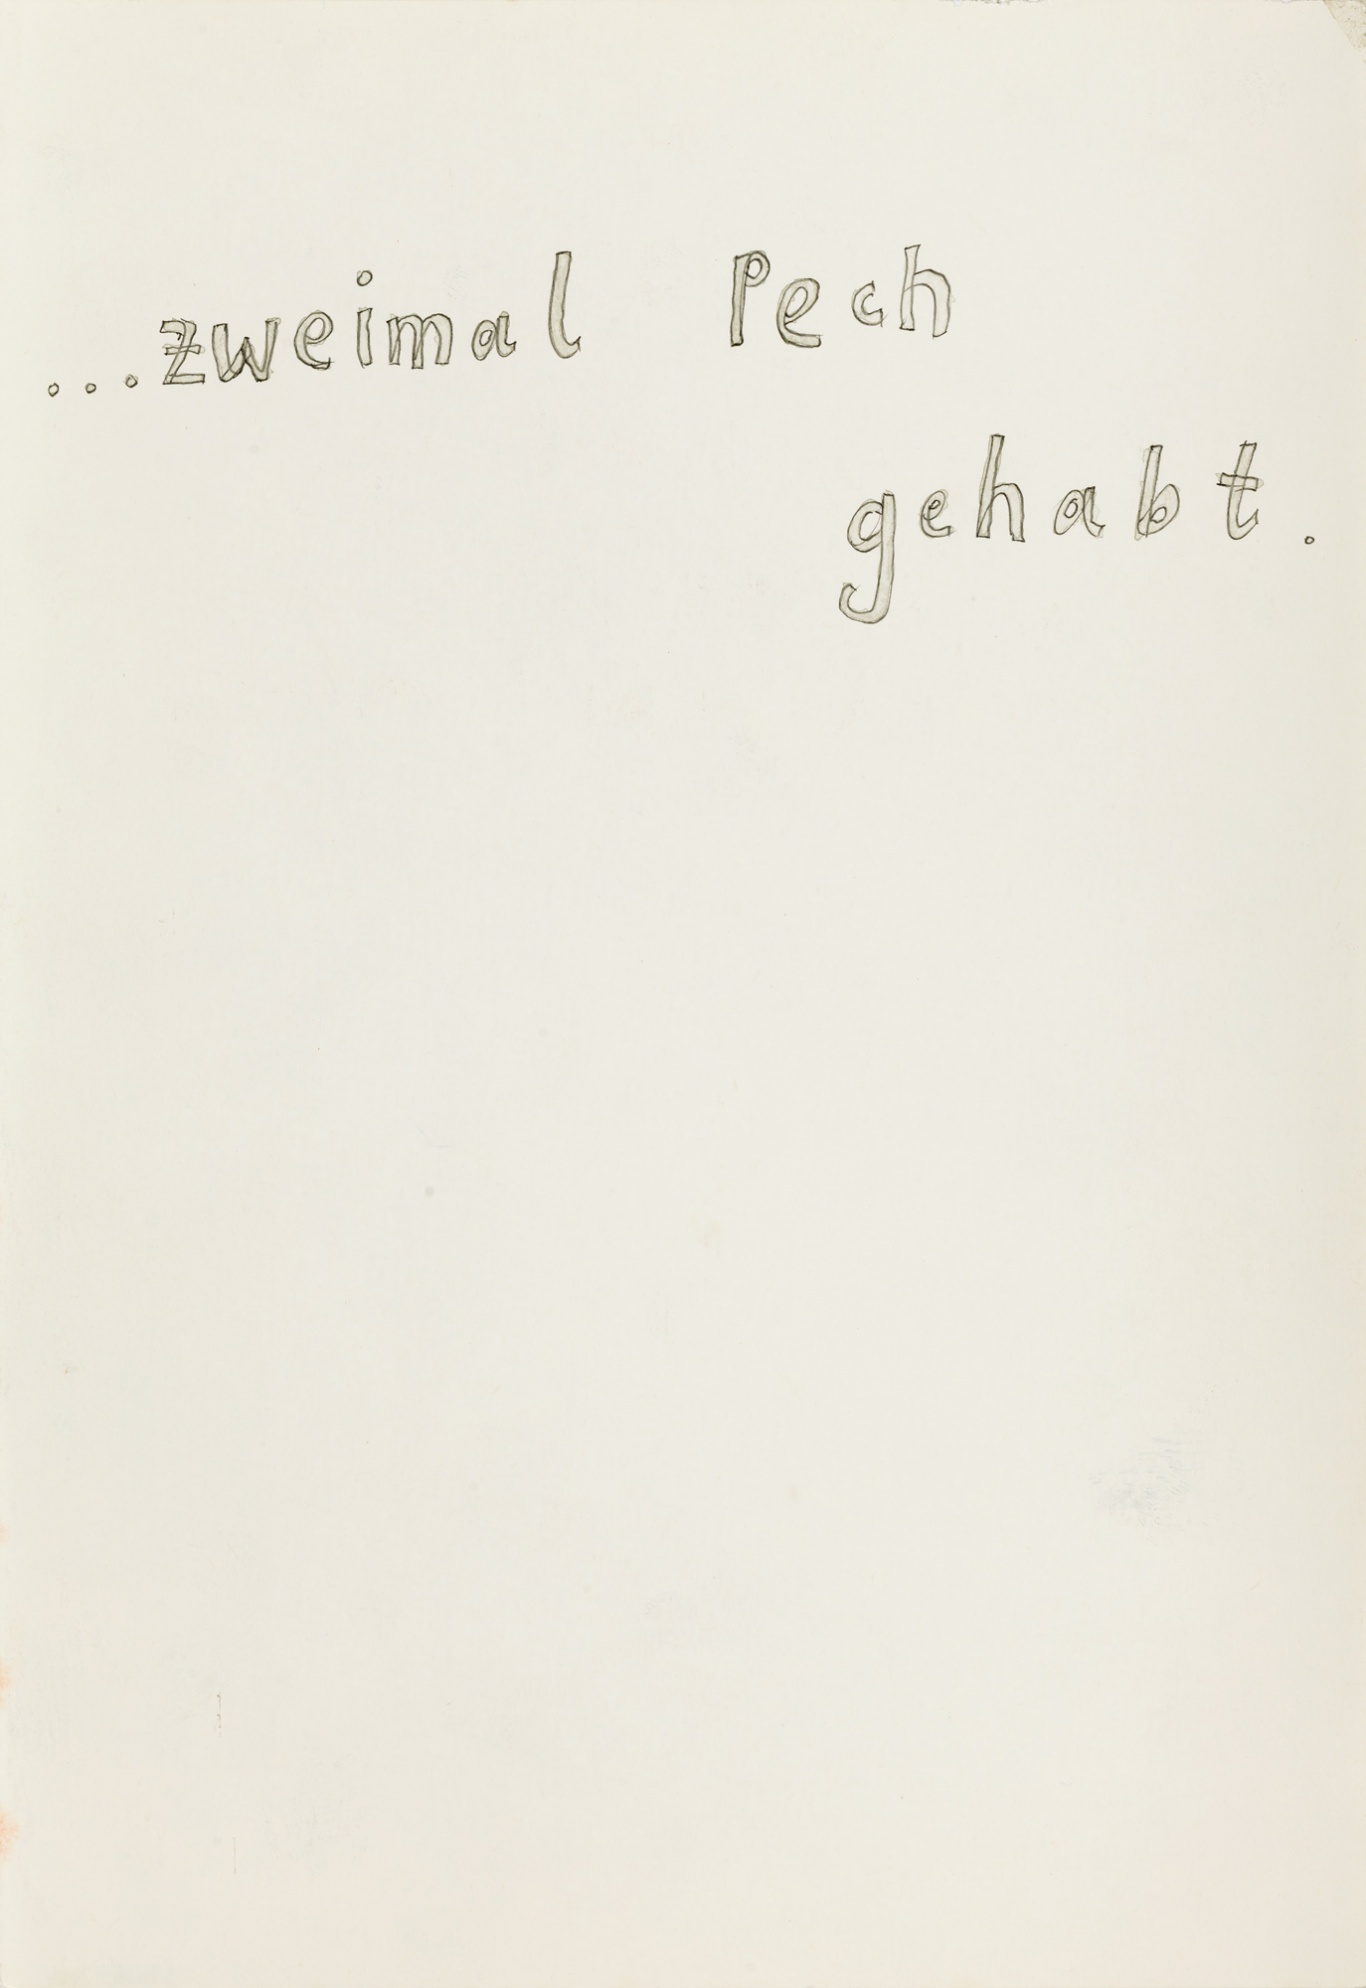 ...zweimal Pech
gehabt.